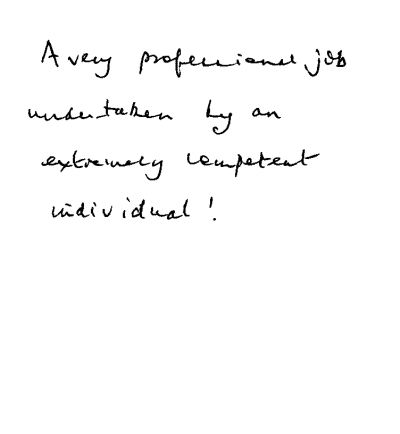 A very professional job
undertaken by an
extremely competent
individual!